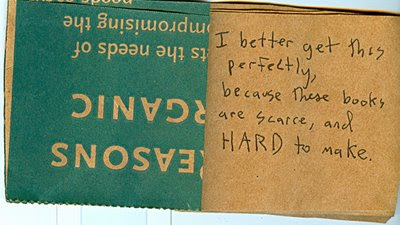 REASONS
RGANIC
ts the needs of
ompromising the
I better get this
perfectly,
because these books
are scarce, and
HARD to make.